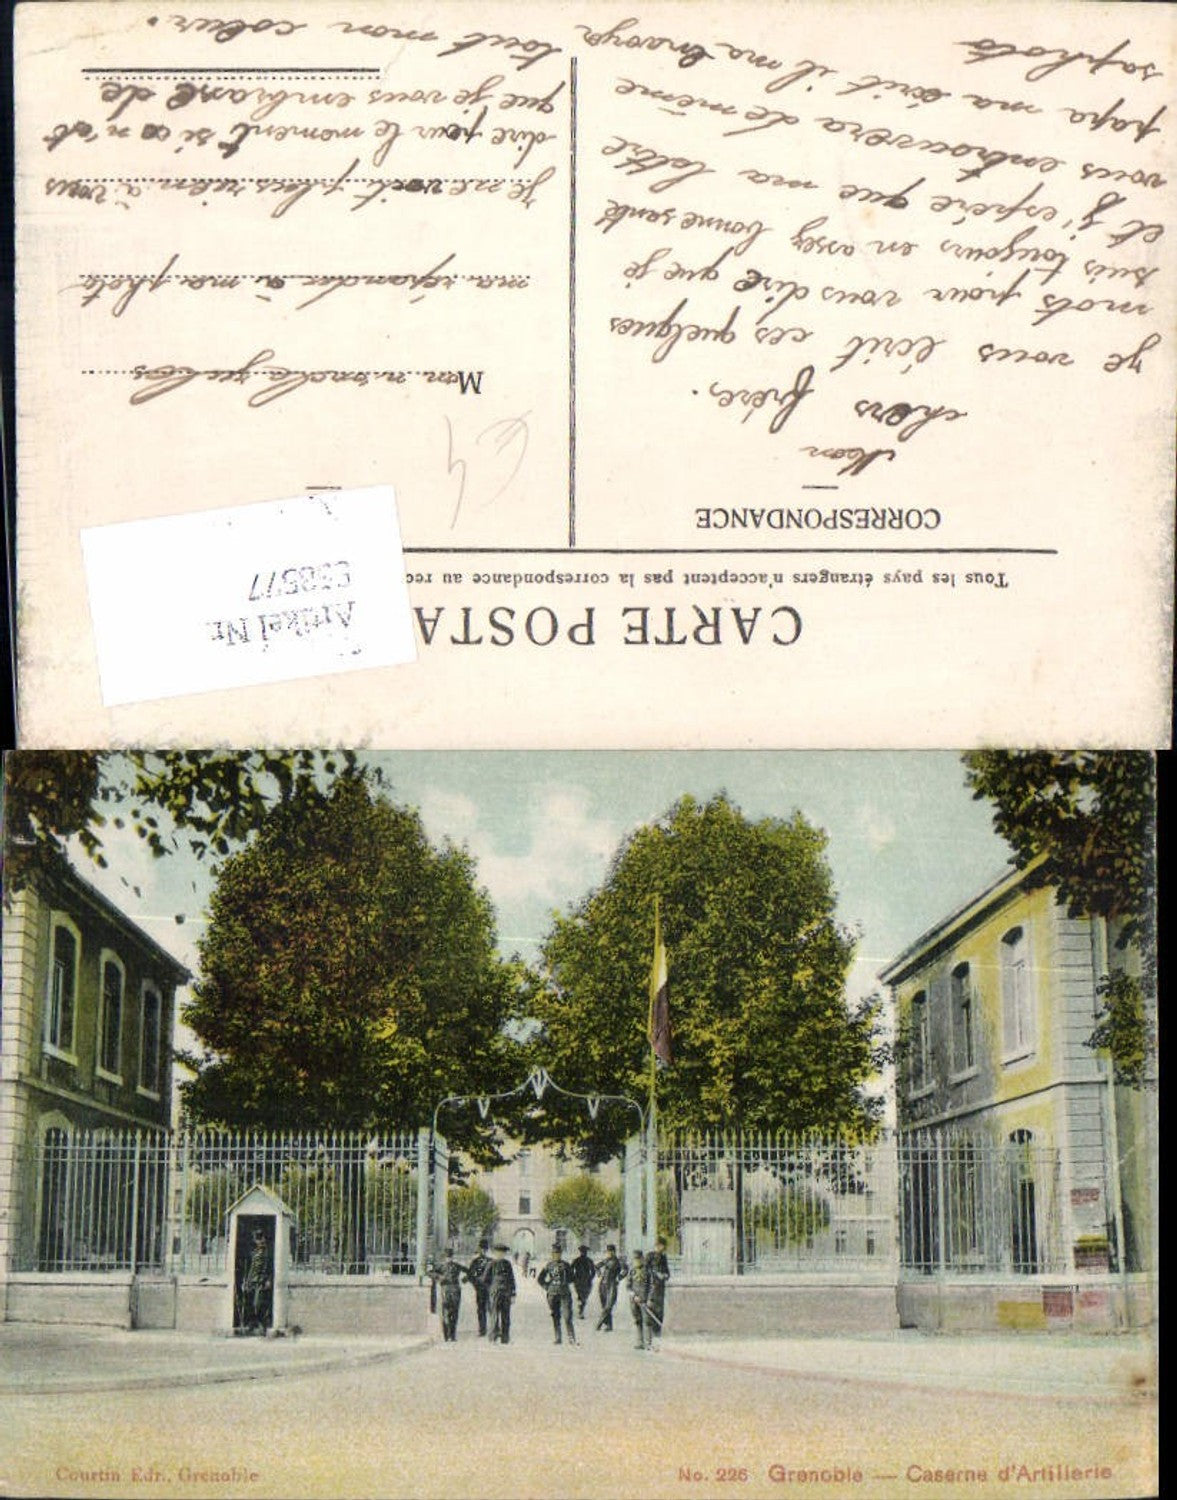 CARTE POSTA
Tous les pays étrangers n'acceptent pas la correspondance au rec
CORRESPONDANCE
Mon
chers frères.
Je vous écrit ces quelques
mots pour vous dire que je
suis toujours en assez bonne sante
et j'espère que ma lettre
vous embrouvera de même
papa ma écrit il ma envoyer
saphoto
Artikel Nr.
538577
€4
M
ma répondre à ma photo
Je ne voit plus rien à vous
dire pour le moment si ce n'et
que je vous embrasse de
tout mon coeur.
Courtin Edr., Grenoble
No. 226 Grenoble — Caserne d'Artillerie